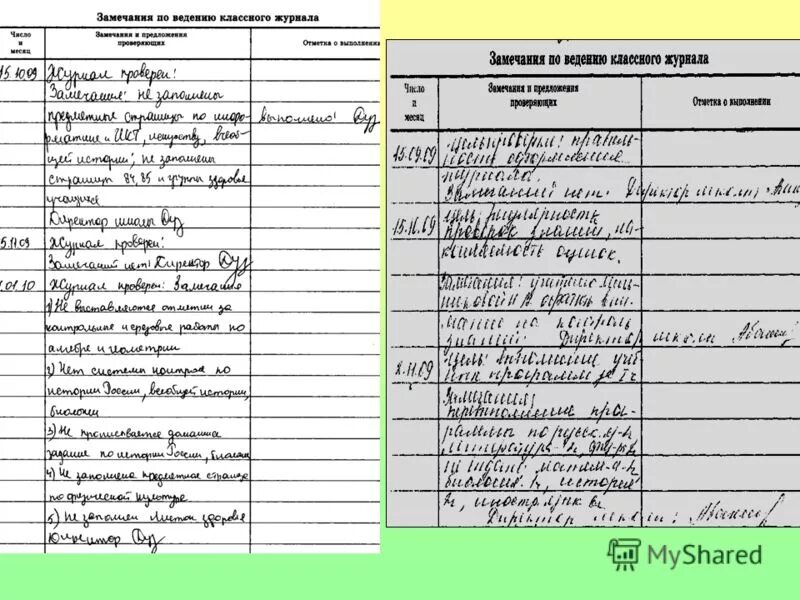 Замечания по ведению классного журнала
Число и месяц
Замечания и предложения проверяющих
Отметка о выполнении
15.10.09 Журнал проверен!
Замечания: не заполнены
предметные страницы по инфор-
матике и ИКТ, искусству, всеоб-
щей истории; не заполнены
страницы 84, 85 и группы здоровья
учащихся
выполнено!
Директор школы
5.11.09 Журнал проверен!
Замечаний нет! Директор
.01.10 Журнал проверен: Замечания
1) Не выставляются отметки за
контрольные и срезовые работы по
алгебре и геометрии
2) Нет системы контроля по
истории России, всеобщей истории,
биологии
3) Не прописывается домашнее
задание по истории России, биологии
4) Не заполнена предметная страница
по физической культуре
5) Не заполнен Листок здоровья
Директор
Замечания по ведению классного журнала
Число и месяц
Замечания и предложения проверяющих
Отметка о выполнении
15.09.09 Цель проверки: правиль-
ность оформления
журнала.
Замечаний нет. Директор школы:
15.10.09 Цель: регулярность
проверок знаний, на-
капляемость оценок.
Замечания:
знаний. Директор школы
2.11.09 Цель: выполнение учеб-
ных программ за I ч.
Замечания:
программы по русск.
литература
биология, история
Директор школы:
MyShared